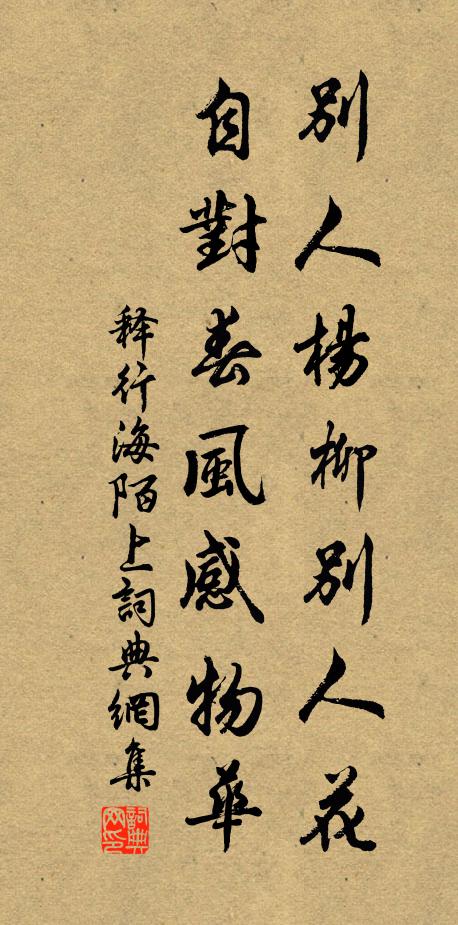 別人楊柳別人花
自對春風感物華
释行海陌上詞典網集
詞典网印